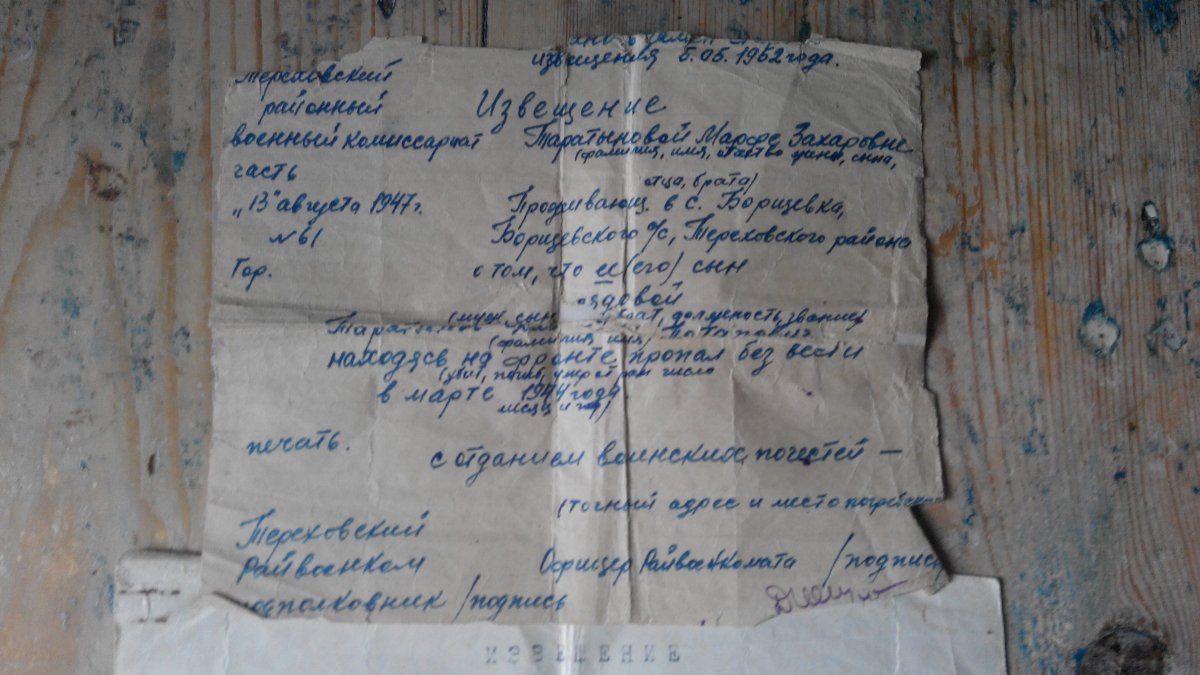 извещения 5.05.1952 года.
Тереховский
районный Извещение
военный комиссариат Таратыновой Марфе Захаровне
(фамилия, имя, отчество жены, сына,
часть
отца, брата)
„13" августа 1947 г. Проживающ. в с. Борщевка,
№61 Борщевского с/с, Тереховского района
Гор. о том, что ее (его) сын
ездовой
(муж, сын брат, должность, звание)
(фамилия, имя)
находясь на фронте пропал без вести
(убит, погиб, умер от ран число
в марте 1944 года.
месяц и год)
печать. с отданием воинских почестей —
(точный адрес и место
Тереховский
Райвоенком Офицер Райвоенкомата /подпись
подполковник /подпись
ИЗВЕЩЕНИЕ